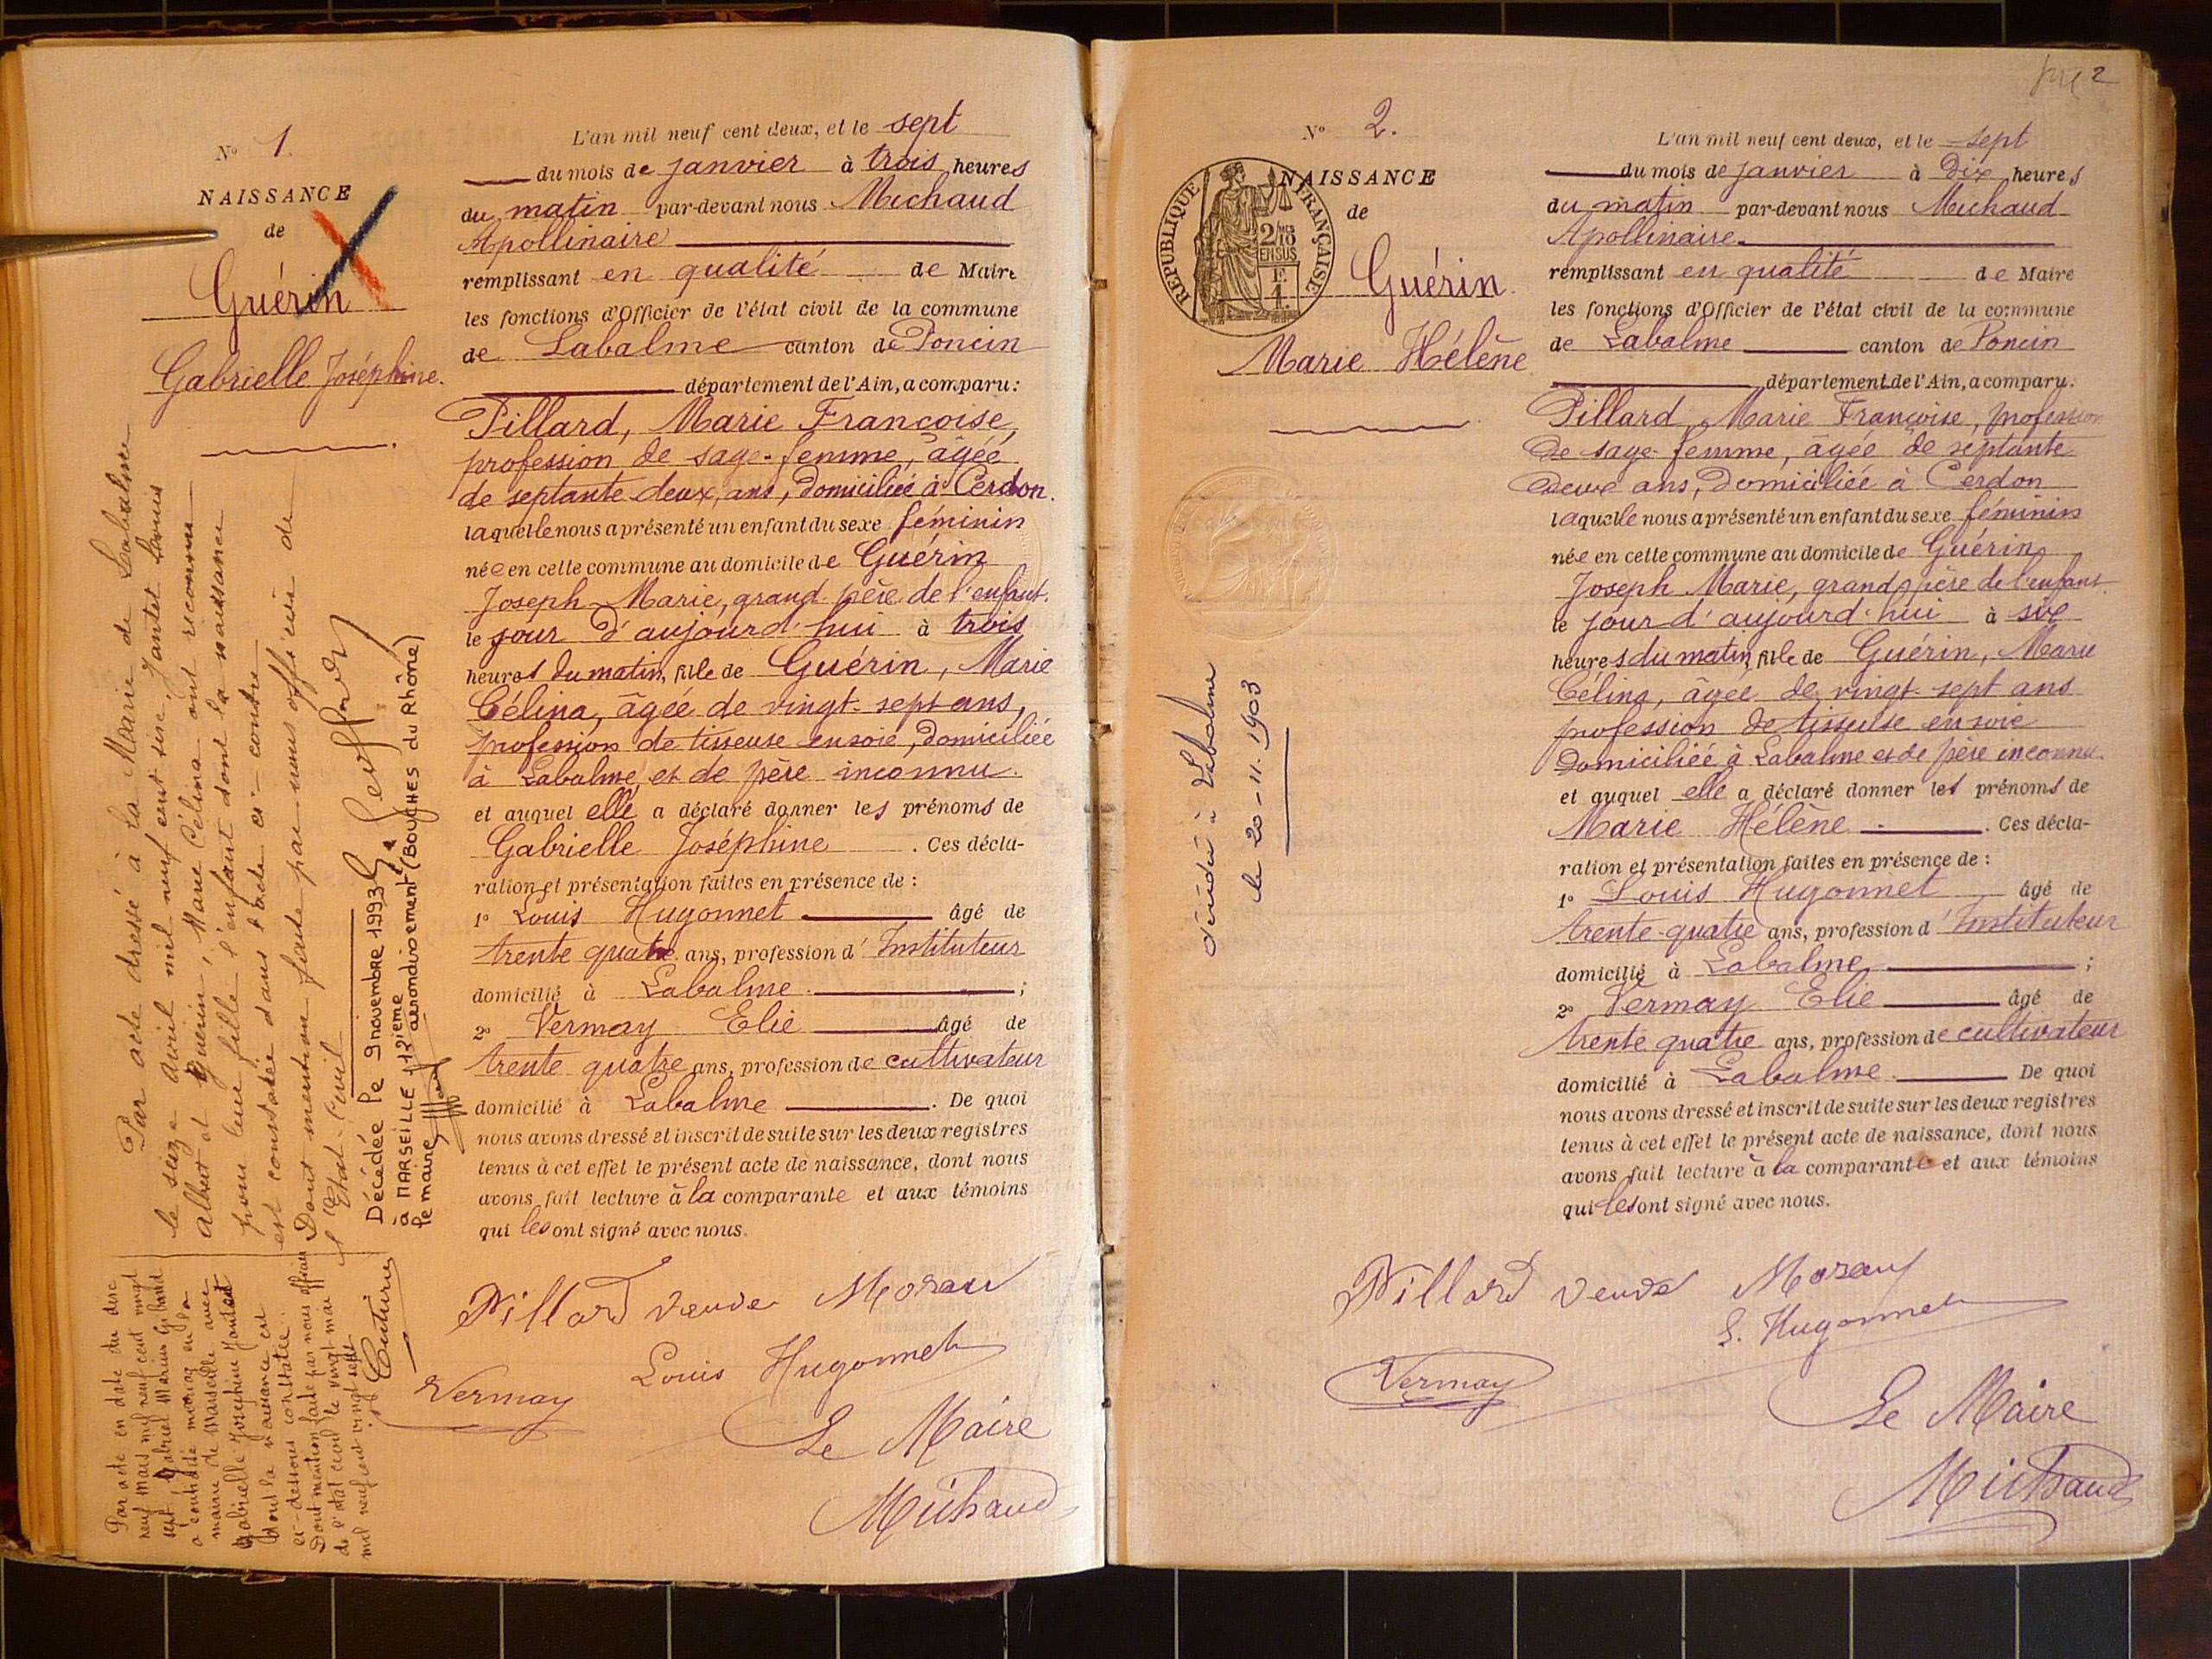 N° 1.
NAISSANCE
de
Guérin
Gabrielle Joséphine.
L'an mil neuf cent deux, et le sept
du mois de janvier à trois heures
du matin par-devant nous Michaud
Apollinaire
remplissant en qualité de Maire
les fonctions d'Officier de l'état civil de la commune
de Labalme canton de Poncin
département de l'Ain, a comparu :
Pillard, Marie Françoise,
profession de sage-femme, âgée
de septante deux, ans, domiciliée à Cerdon.
laquelle nous a présenté un enfant du sexe féminin
née en cette commune au domicile de Guérin
Joseph Marie, grand père de l'enfant.
le jour d'aujourd'hui à trois
heures du matin, fille de Guérin, Marie
Célina, âgée de vingt-sept ans,
profession de tisseuse en soie, domiciliée
à Labalme, et de père inconnu.
et auquel elle a déclaré donner les prénoms de
Gabrielle Joséphine . Ces décla-
ration et présentation faites en présence de :
1° Louis Hugonnet âgé de
trente quatre ans, profession d'Instituteur
domicilié à Labalme. ;
2° Vermay Elie âgé de
trente quatre ans, profession de cultivateur
domicilié à Labalme . De quoi
nous avons dressé et inscrit de suite sur les deux registres
tenus à cet effet le présent acte de naissance, dont nous
avons fait lecture à la comparante et aux témoins
qui les ont signé avec nous.
Pillard veuve Moran
Louis Hugonnet
Vermay
Le Maire
Michaud
Par acte dressé à la Mairie de Labalme
le seize avril mil neuf cent six, Jantet Louis
Albert et Guérin, Marie Célina ont reconnu
pour leur fille l'enfant dont la naissance
est constatée dans l'acte ci-contre
Dont mention faite par nous officier de
l'Etat-Civil
Décédée le 9 novembre 1993
à MARSEILLE 12ième arrondissement (BOUCHES du Rhône)
le maire,
Par acte en date du dix
neuf mars mil neuf cent vingt
sept, Gabriel Marius
a contracté mariage en la
mairie de Marseille avec
Gabrielle Joséphine Jantet
dont la naissance est
ci-dessus constatée.
Dont mention faite par nous officier
de l'état civil le vingt mai
mil neuf cent vingt sept
2
N° 2.
RÉPUBLIQUE FRANÇAISE
2/10
EN SUS
NAISSANCE
de
Guérin.
Marie Hélène
décédée à Labalme
le 20-11-1903
L'an mil neuf cent deux, et le sept
du mois de janvier à Dix heures
du matin par-devant nous Michaud
Apollinaire.
remplissant en qualité de Maire
les fonctions d'Officier de l'état civil de la commune
de Labalme canton de Poncin
département de l'Ain, a comparu :
Pillard, Marie Françoise, profession
de sage-femme, âgée de septante
deux ans, domiciliée à Cerdon
laquelle nous a présenté un enfant du sexe féminin
née en cette commune au domicile de Guérin
Joseph Marie, grand père de l'enfant.
le jour d'aujourd'hui à six
heures du matin, fille de Guérin, Marie
Célina, âgée de vingt-sept ans
profession de tisseuse en soie
domiciliée à Labalme et de père inconnu.
et auquel elle a déclaré donner les prénoms de
Marie Hélène . Ces décla-
ration et présentation faites en présence de :
1° Louis Hugonnet âgé de
trente-quatre ans, profession d'Instituteur
domicilié à Labalme ;
2° Vermay Elie âgé de
trente quatre ans, profession de cultivateur
domicilié à Labalme. De quoi
nous avons dressé et inscrit de suite sur les deux registres
tenus à cet effet le présent acte de naissance, dont nous
avons fait lecture à la comparante et aux témoins
qui les ont signé avec nous.
Pillard veuve Moran
L. Hugonnet
Vermay
Le Maire
Michaud